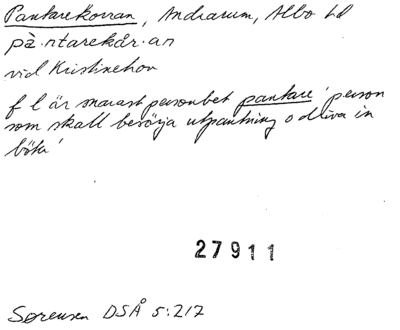 Pantarekorran, Andrarum, Albo hd
pà·ntarekår·an
vid Kristinehov
f l är snarast personbet pantare 'person
som skall besörja utpantning o driva in
böter'
27911
Sørensen DSÅ 5:217